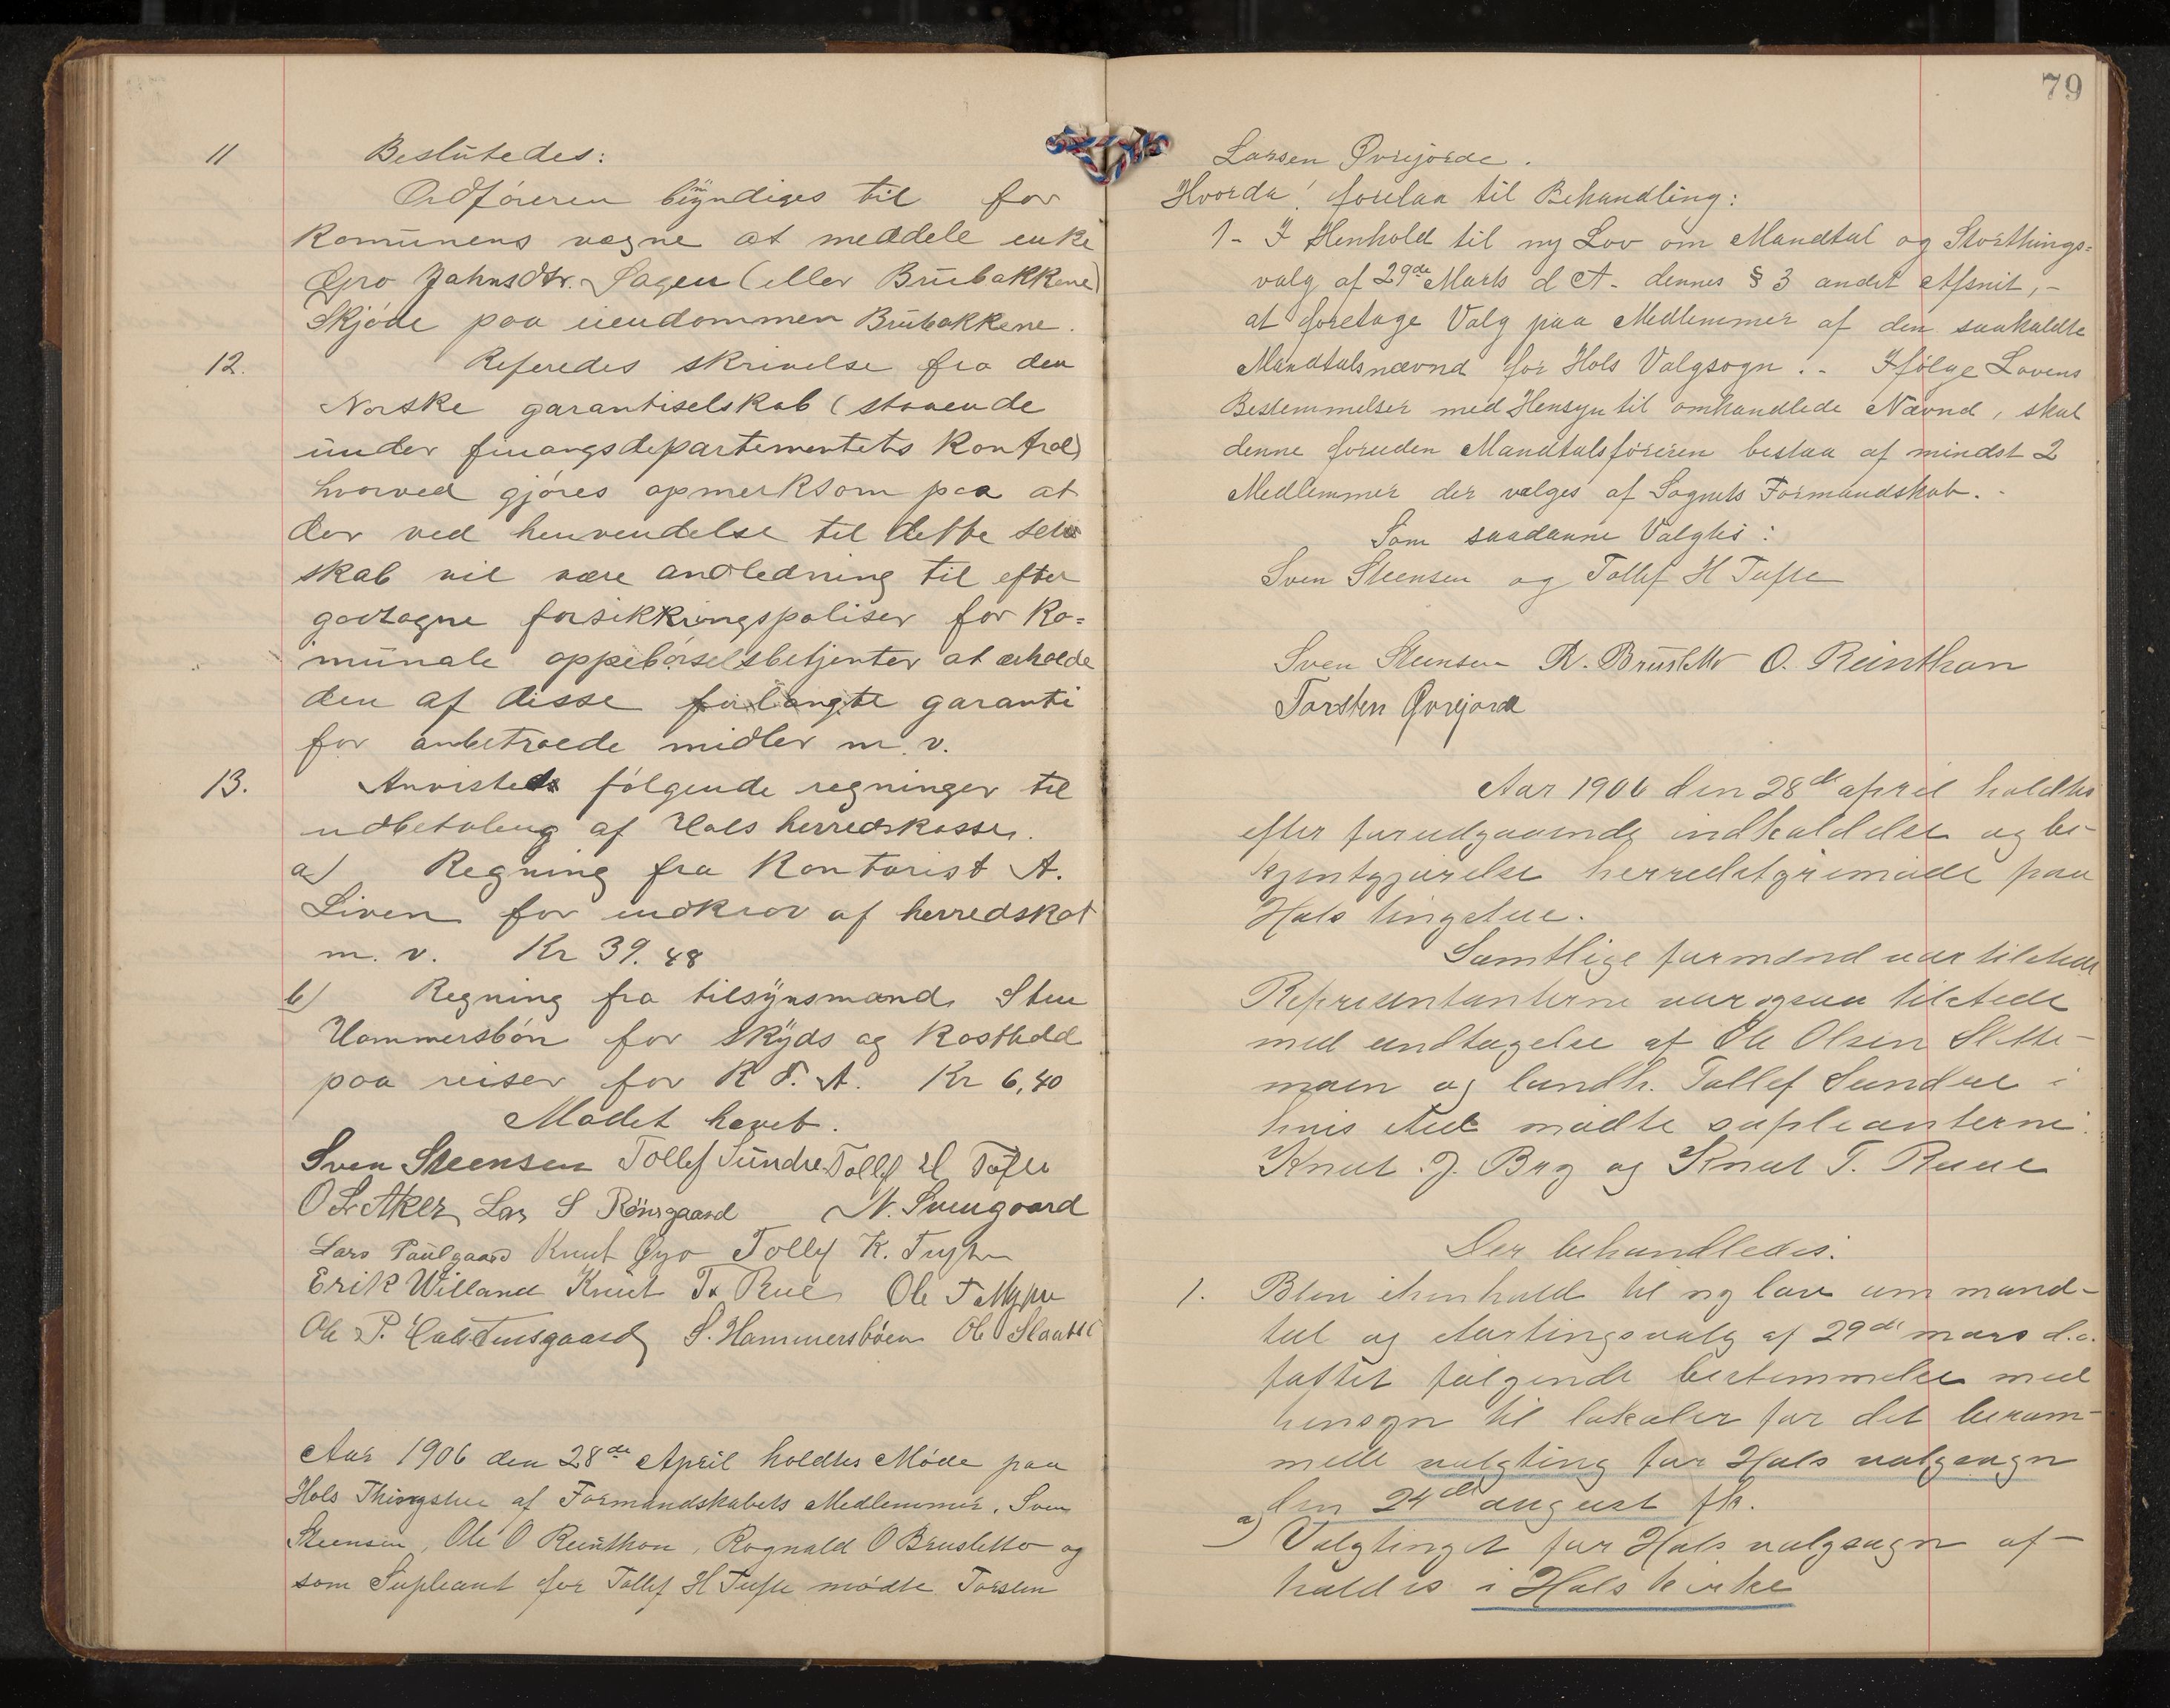 11 Beslutedes:
Ordføreren bemyndiges til for
Komunens vægne at meddele enke
Gro Jahnsdtr. Hagen (eller Brubakkene)
Skjøde paa eiendommen Brubakkene.
12. Referedes skrivelse fra den
Norske garantiselskab (staaende
under finangsdepartementets Kontrol)
hvorved gjøres opmerksom paa at
der ved henvendelse til dette sel
skab vil være andledning til efter
godtagne forsikkringspoliser for Ko=
munale oppebørselsbetjenter at erholde
den af disse forlangte garanti
for anbetroede midler m. v.
13. Anvistes følgende regninger til
udbetaling af Hols herredskasse.
a) Regning fra Kontorist A.
Liven for indkrav af herredskat
m. v. Kr 39.48
b) Regning fra tilsynsmand Sten
Hammersbøn for skyds og Kosthold
paa reiser for R F. A. Kr 6,40
Mødet hævet.
Sven Steensen Tollef Sundre Tollef H Tufte
O S Aker Lars S Rønsgaard N. Sveingaard
Lars Paulgaard Knut Øyo Tollef K. Tufte
Erik Willand Knut T. Rue Ole T Myhre
Ole P. Tinsgaard S. Hammersbøen Ol Slaatto
Aar 1906 den 28de April holdtes Møde paa
Hols Thingstue af Formandskabets Medlemmer, Sven
Steensen, Ole O Reinthon, Ragnald O Brusletto og
som Supleant for Tollef H Tufte mødte Torsten
79
Larsen Øvrejorde.
Hvorda! forelaa til Behandling:
1- I Henhold til ny Lov om Mandtal og Storthings=
valg af 29de Marts d A. dennes § 3 andet Afsnit,-
at foretage Valg paa Medlemmer af den saakaldte
Mandtalsnævnd for Hols Valgsogn.- Ifølge Lovens
Bestemmelser med Hensyn til omhandlede Nævnd, skal
denne foruden Mandtalsføreren bestaa af mindst 2
Medlemmer der vælges af Sognets Formandskab.-
Som saadanne Valgtes:
Sven Steensen og Tollef H Tufte
Sven Steensen R. Brusletto O. Reinthon
Torsten Øvrejorde
Aar 1906 den 28de april holdtes
efter forudgaaende indkaldelse og be-
kjentgjørelse herredstyremøde paa
Hols tingstue.
Samtlige formænd var tilstede
Repræsentanterne var ogsaa tilstede
med undtagelse af Ole Olsen Slette-
moen og landh. Tollef Sundre i
hvis sted mødte supleanterne:
Knut J. Berg og Knut T. Ruue
Der behandledes:
1. Blev i henhold til ny lov om mand-
tal og stortingsvalg af 29de mars d.a.
fattet følgende bestemmelse med
hensyn til lokaler for det beram-
mede valgting for Hols valgsogn
den 24de august fk.
a) Valgtinget for Hols valgsogn af-
holdes i Hols kirke